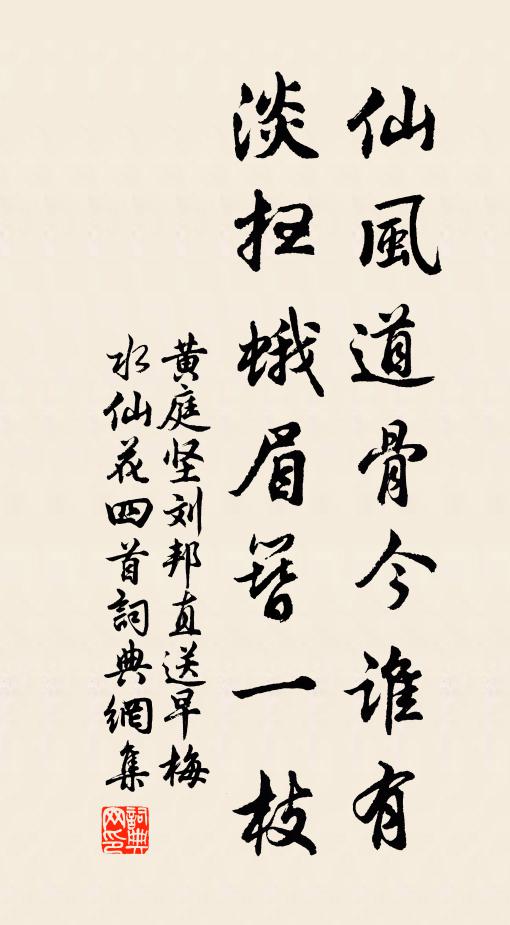 仙風道骨今誰有
淡扫蛾眉簪一枝
黄庭坚刘邦直送早梅
水仙花四首詞典網集
詞典
网印